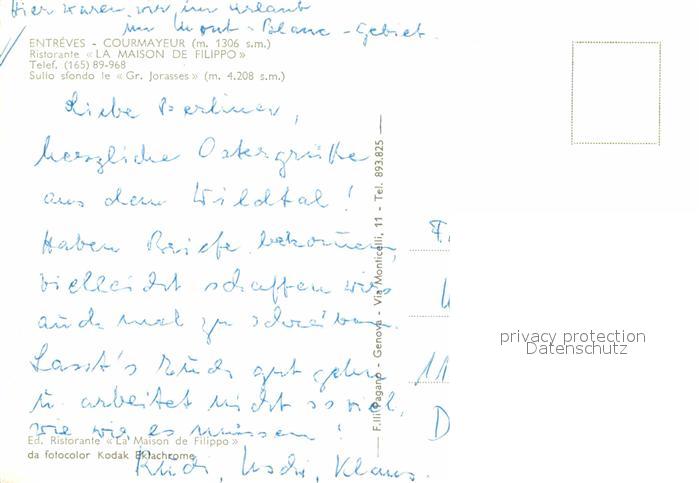 Hier waren wir im Urlaub
im Mont-Blanc-Gebiet.
ENTRÉVES - COURMAYEUR (m. 1306 s.m.)
Ristorante «LA MAISON DE FILIPPO»
Telef. (165) 89-968
Sullo sfondo le «Gr. Jorasses» (m. 4.208 s.m.)
Liebe Berliner,
herzliche Ostergrüße
aus dem Wildtal!
Haben Briefe bekommen,
vielleicht schaffen wirs
auch mal zu schreiben.
Lasst's Euch gut gehen
u. arbeitet nicht so viel,
wie wir es müssen!
Ed. Ristorante «La Maison de Filippo»
da fotocolor Kodak Ektachrome
Rudi, Uschi, Klaus.
F.lli Pagano - Genova - Via Monticelli, 11 - Tel. 893.825
11
D
privacy protection
Datenschutz